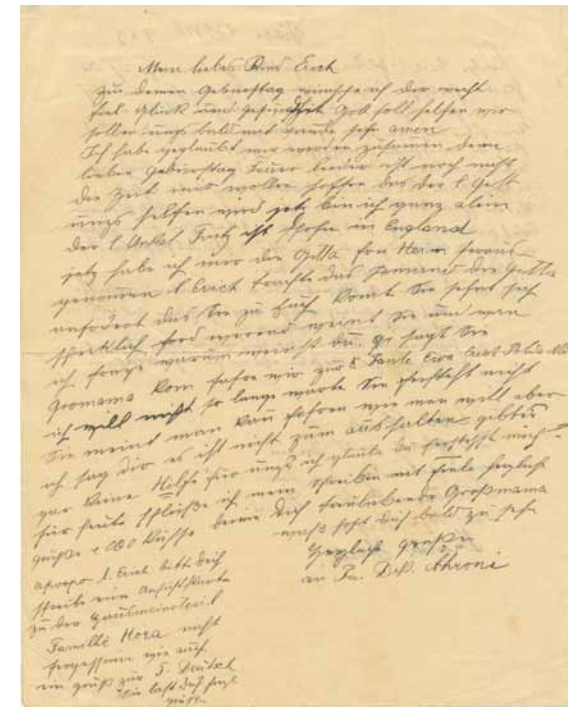 Mein liebes Kind Erich
zu deinen Geburtstag wünsche ich dir recht
fiel Glück und Gesundheit Gott soll helfen wir
sollen ungs bald mit freude sehn amen
Ich habe geglaubt wir werden zusamen dein
lieben Geburtstag leider ist noch nicht
die Zeit wir wollen hoffen das der l. Gott
ungs helfen wird jetz bin ich ganz alein
der l. Onkel Fritz ist schohn in England
jetz habe ich mir die Gitta fon Heim heraus
genomen l. Erich trachte das jemand die Gitta
anfordert das Sie zu Euch komt Sie sehnt sich
schreklich wird weint Sie und wen
ich frage warum weinst du so sagt Sie
Gromama kom fahre wir zur l. Tante Ewa
ich will nicht so lange warte Sie fersteht nicht
Sie meint man kan fahren wie man will aber
ich sag dir es ist nicht zum aushalten gibts
gar keine Helfe für ungs ich glaube du ferstehst mich
für heute schließe ich mein schreiben mit fiele herzliche
grüße + 1000 Küsse deine dich treuliebende Großmama
was hoft dich bald zu sehn
Herzliche grüße
an Fa. Ahroni
apropo l. Erich bitt dich
schreibe eine Ansichtskarte
zu der
Familie Hora nicht
fergessen wie auch
ein gruß zur F. Deutsch
Sie last dich herzl
grüße